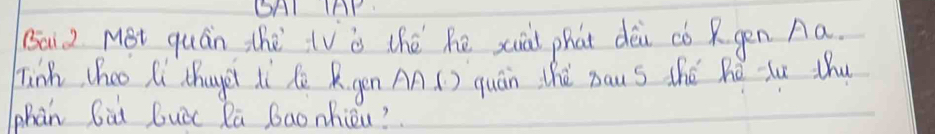 BÀI TẬP
Bài 2 Một quần thể tv ở thế hệ xuất phát đều có k gen Aa.
Tính theo lí thuyết tỉ lệ k gen AA () quần thể sau 5 thế hệ tự thụ
phấn bắt buộc là bao nhiêu?.